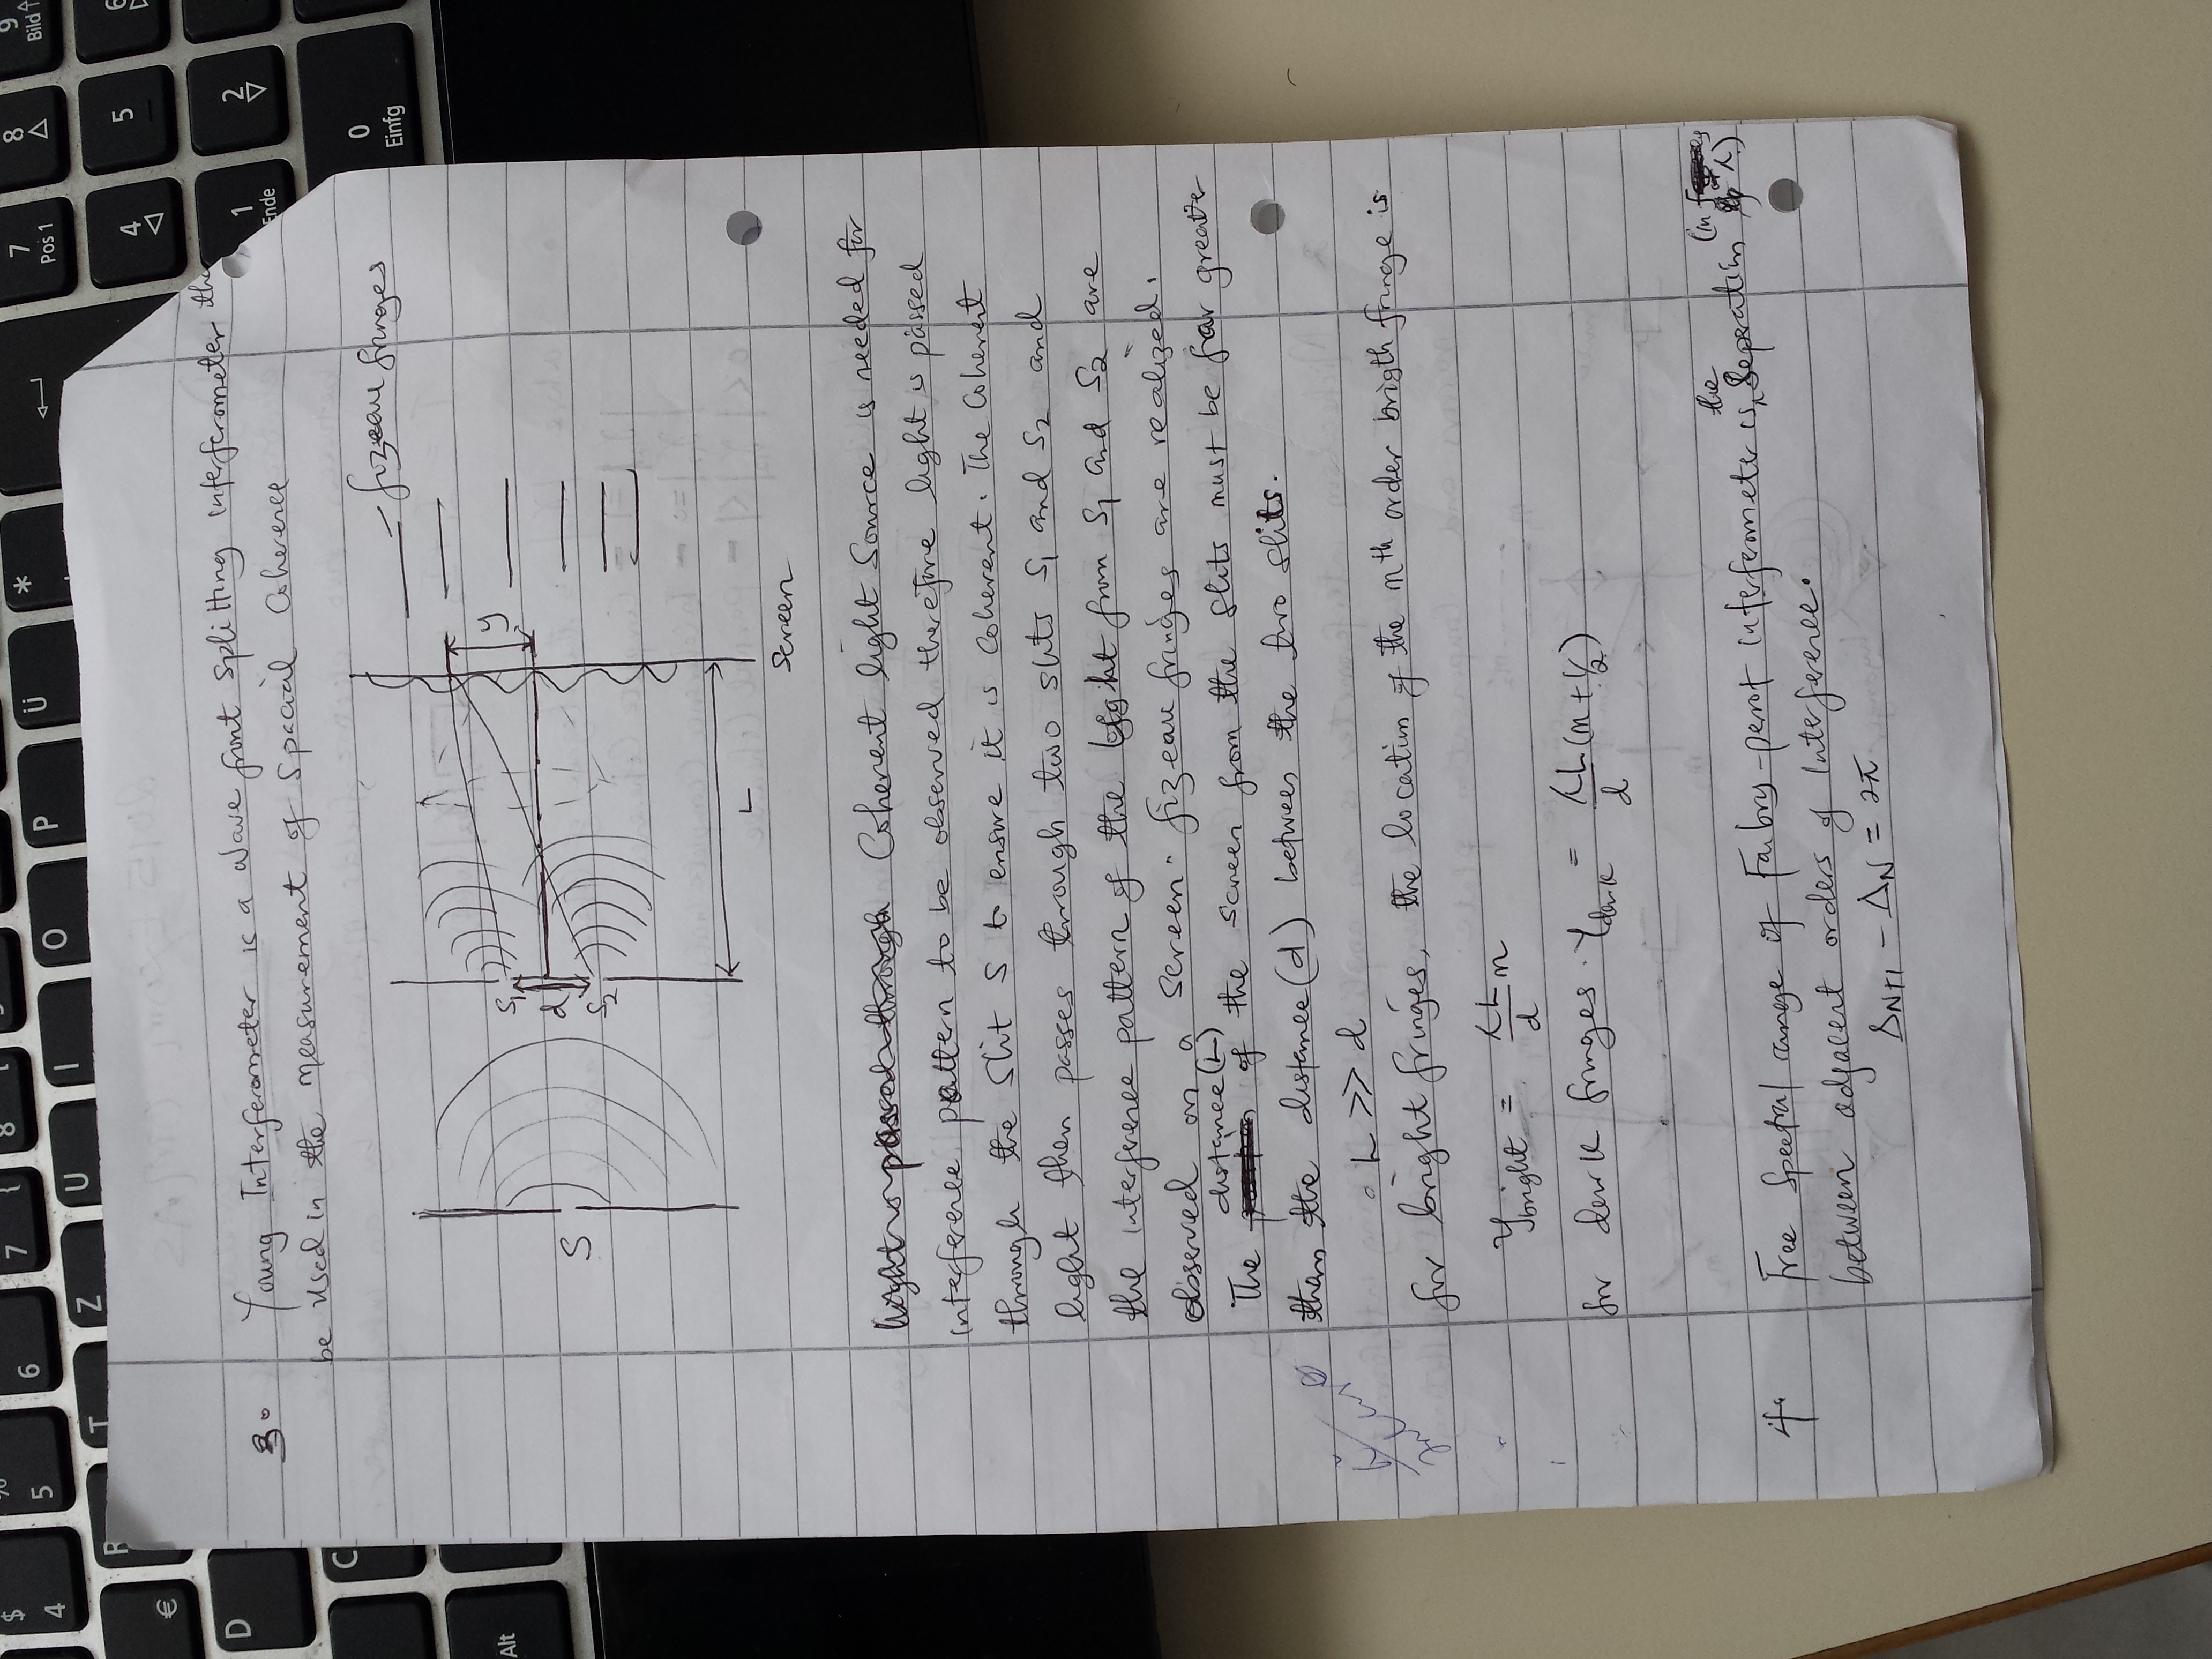 3. Young Interferometer is a wave front splitting interferometer tha
be used in the measurement of Spacial Coherence
fizeau fringes
S
S1
d
S2
y
L
Screen
Light no passed through Coherent light Source is needed for
interference pattern to be observed therefore light is passed
through the Slit S to ensure it is coherent. The coherent
light then passes through two slits S1 and S2 and
the interference pattern of the light from S1 and S2 are
observed on a Screen. fizeau fringes are realized.
The distance (L) of the screen from the slits must be far greater
then the distance (d) between the two slits.
∴ L >> d
for bright fringes, the location of the mth order brigth fringe is
ybright = λL/d m
for dark fringes. Ydark = λL/d (m + 1/2)
4. Free Spectral range of Farbry-perot interferometer is the Seperation (in of λ)
between adjacent orders of interference.
ΔN+1 - ΔN = 2π
9
Bild
6
8
5
2
0
Einfg
7
Pos 1
4
1
Ende
*
Ü
P
O
I
U
Z
T
R
8
7
{
6
%
5
$
4
€
D
C
Alt